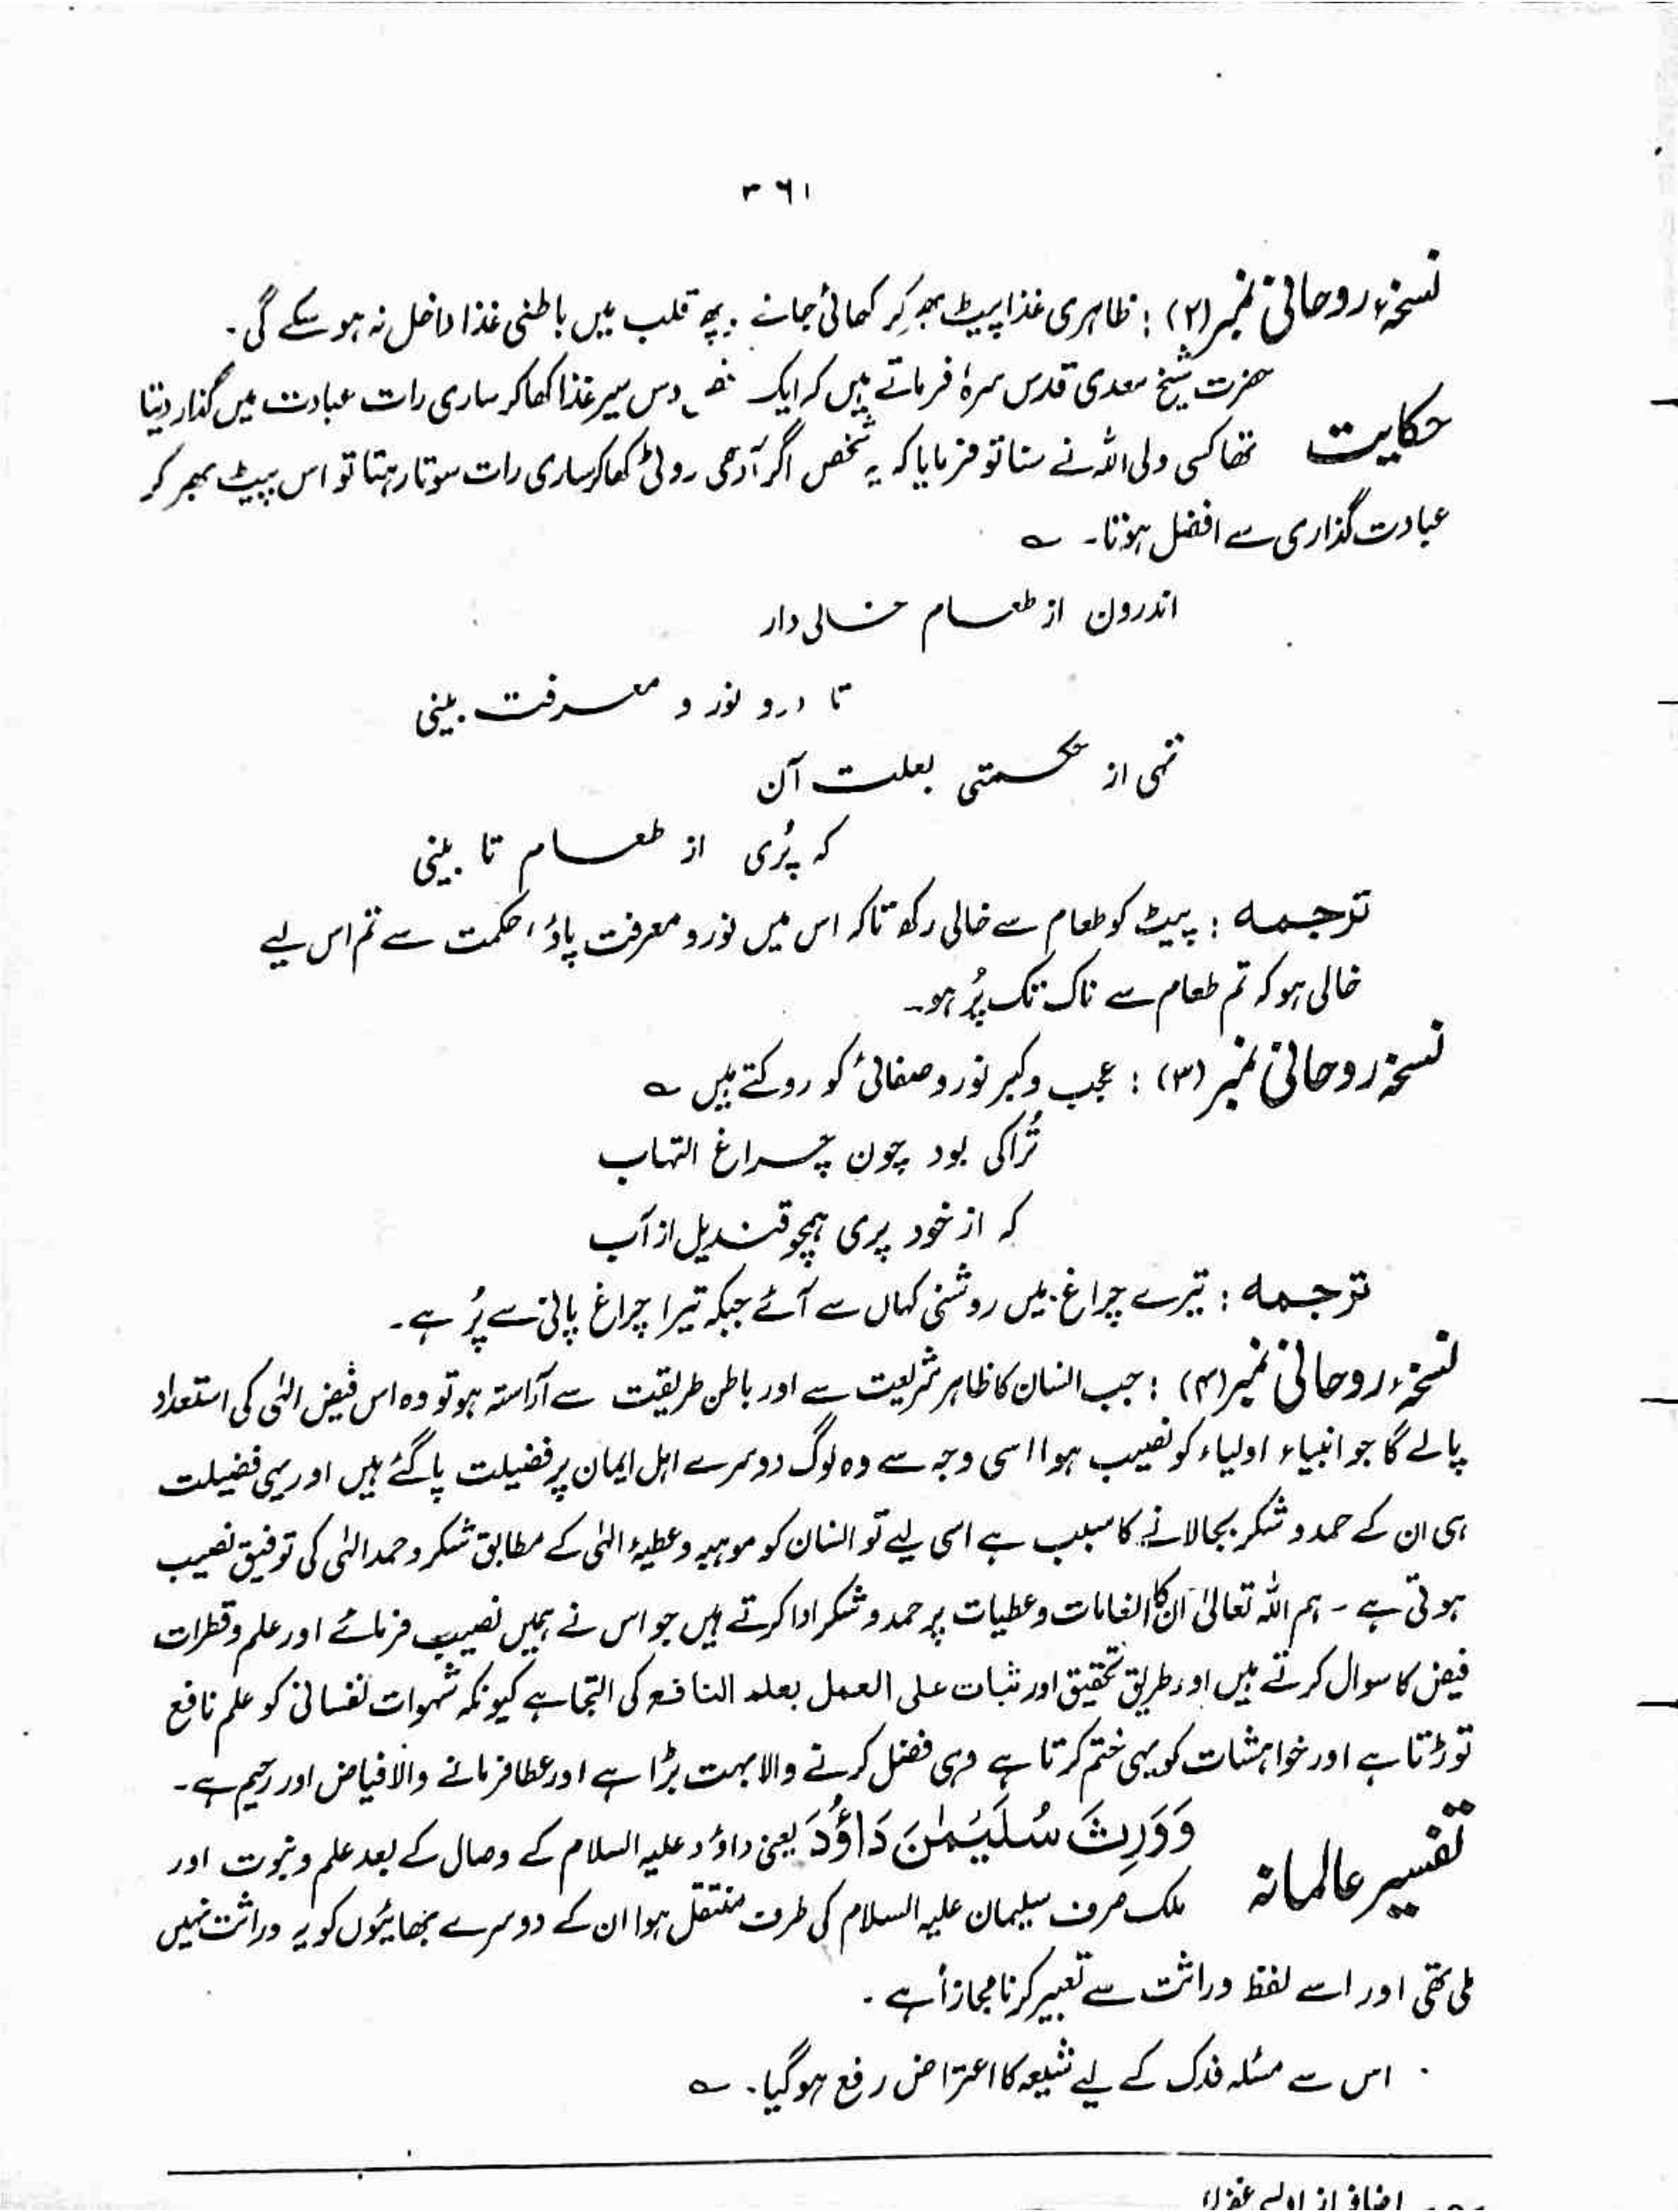 ۳۶۱
نسخہء روحانی نمبر (۲) : ظاہری غذا پیٹ بھر کر کھائی جانے پر قلب میں باطنی غذا داخل نہ ہو سکے گی۔
حضرت شیخ سعدی قدس سرہٗ فرماتے ہیں کہ ایک دس سیر غذا کھا کر ساری رات عبادت میں گذار دیتا
حکایت تھا کسی ولی اللہ نے سنا تو فرمایا کہ یہ شخص اگر آدھی روٹی کھا کر ساری رات سوتا رہتا تو اس پیٹ بھر کر
عبادت گذاری سے افضل ہوتا۔ ؎
اندرون از طعام خالی دار
تا درو نور و معرفت بینی
تہی از حکمتی بعلت آن
کہ پُری از طعام تا بینی
ترجمہ : پیٹ کو طعام سے خالی رکھ تاکہ اس میں نور و معرفت پاؤ، حکمت سے تم اس لیے
خالی ہو کہ تم طعام سے ناک تک پُر ہو۔
نسخہ روحانی نمبر (۳) : عجب و کبر نور و صفائی کو روکتے ہیں ؎
تُرا کی بود چون چراغ التہاب
کہ از خود پری ہمچو قندیل از آب
ترجمہ : تیرے چراغ میں روشنی کہاں سے آئے جبکہ تیرا چراغ پانی سے پُر ہے۔
نسخہء روحانی نمبر (۴) : جب انسان کا ظاہر شریعت سے اور باطن طریقت سے آراستہ ہو تو وہ اس فیض الٰہی کی استعداد
پالے گا جو انبیاء اولیاء کو نصیب ہوا اسی وجہ سے وہ لوگ دوسرے اہل ایمان پر فضیلت پا گئے ہیں اور یہی فضیلت
ہی ان کے حمد و شکر بجالانے کا سبب ہے اسی لیے تو انسان کو موہبہ و عطیۂ الٰہی کے مطابق شکر و حمد الٰہی کی توفیق نصیب
ہوتی ہے ۔ ہم اللہ تعالیٰ ان کا انعامات و عطیات پر حمد و شکر ادا کرتے ہیں جو اس نے ہمیں نصیب فرمائے اور علم و قطرات
فیض کا سوال کرتے ہیں اور طریق تحقیق اور ثبات علی العمل بعلم النافع کی التجا ہے کیونکہ شہوات نفسانی کو علم نافع
توڑتا ہے اور خواہشات کو یہی ختم کرتا ہے وہی فضل کرنے والا بہت بڑا ہے اور عطا فرمانے والا فیاض اور رحیم ہے۔
تفسیر عالمانہ وَوَرِثَ سُلَیْمٰنَ دَاوٗدَ یعنی داؤد علیہ السلام کے وصال کے بعد علم و نبوت اور
ملک صرف سلیمان علیہ السلام کی طرف منتقل ہوا ان کے دوسرے بھائیوں کو یہ وراثت نہیں
ملی تھی اور اسے لفظ وراثت سے تعبیر کرنا مجازاً ہے ۔
اس سے مسئلہ فدک کے لیے شیعہ کا اعتراض رفع ہو گیا۔ ؎
اضافہ از اویسی غفرلہٗ